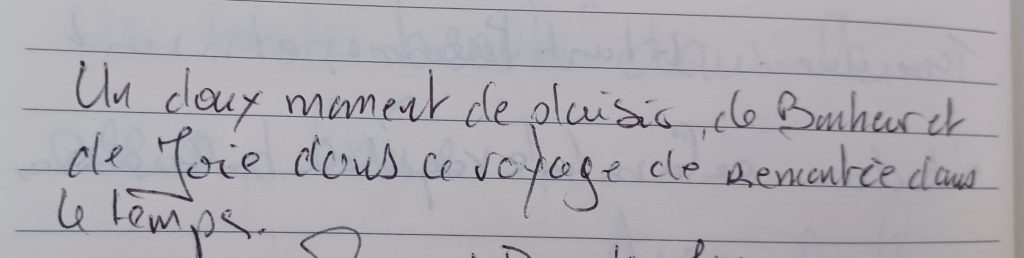 Un doux moment de plaisir, de Bonheur et
de Joie dans ce voyage de remontée dans
le temps.